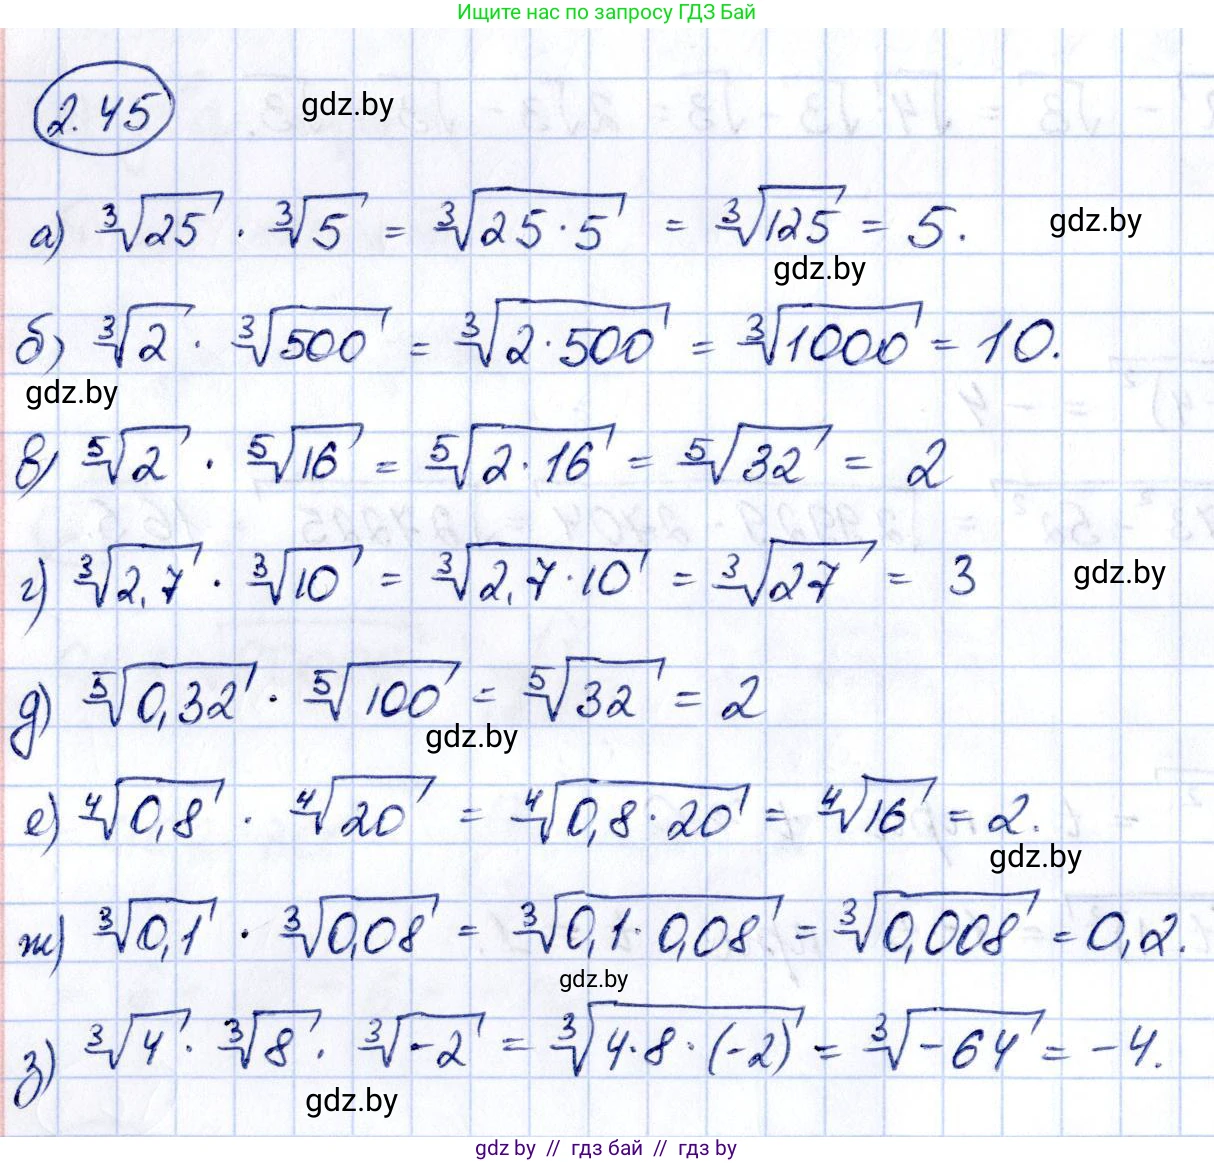 Ищите нас по запросу ГДЗ Бай
2.45
gdz.by
а) ∛25 · ∛5 = ∛(25 · 5) = ∛125 = 5.
gdz.by
gdz.by
б) ∛2 · ∛500 = ∛(2 · 500) = ∛1000 = 10.
gdz.by
в) ⁵√2 · ⁵√16 = ⁵√(2 · 16) = ⁵√32 = 2
г) ∛2,7 · ∛10 = ∛(2,7 · 10) = ∛27 = 3
gdz.by
д) ⁵√0,32 · ⁵√100 = ⁵√32 = 2
gdz.by
е) ⁴√0,8 · ⁴√20 = ⁴√(0,8 · 20) = ⁴√16 = 2.
gdz.by
ж) ∛0,1 · ∛0,08 = ∛(0,1 · 0,08) = ∛0,008 = 0,2.
gdz.by
з) ∛4 · ∛8 · ∛-2 = ∛(4 · 8 · (-2)) = ∛-64 = -4.
gdz.by
gdz by // гдз бай // гдз by